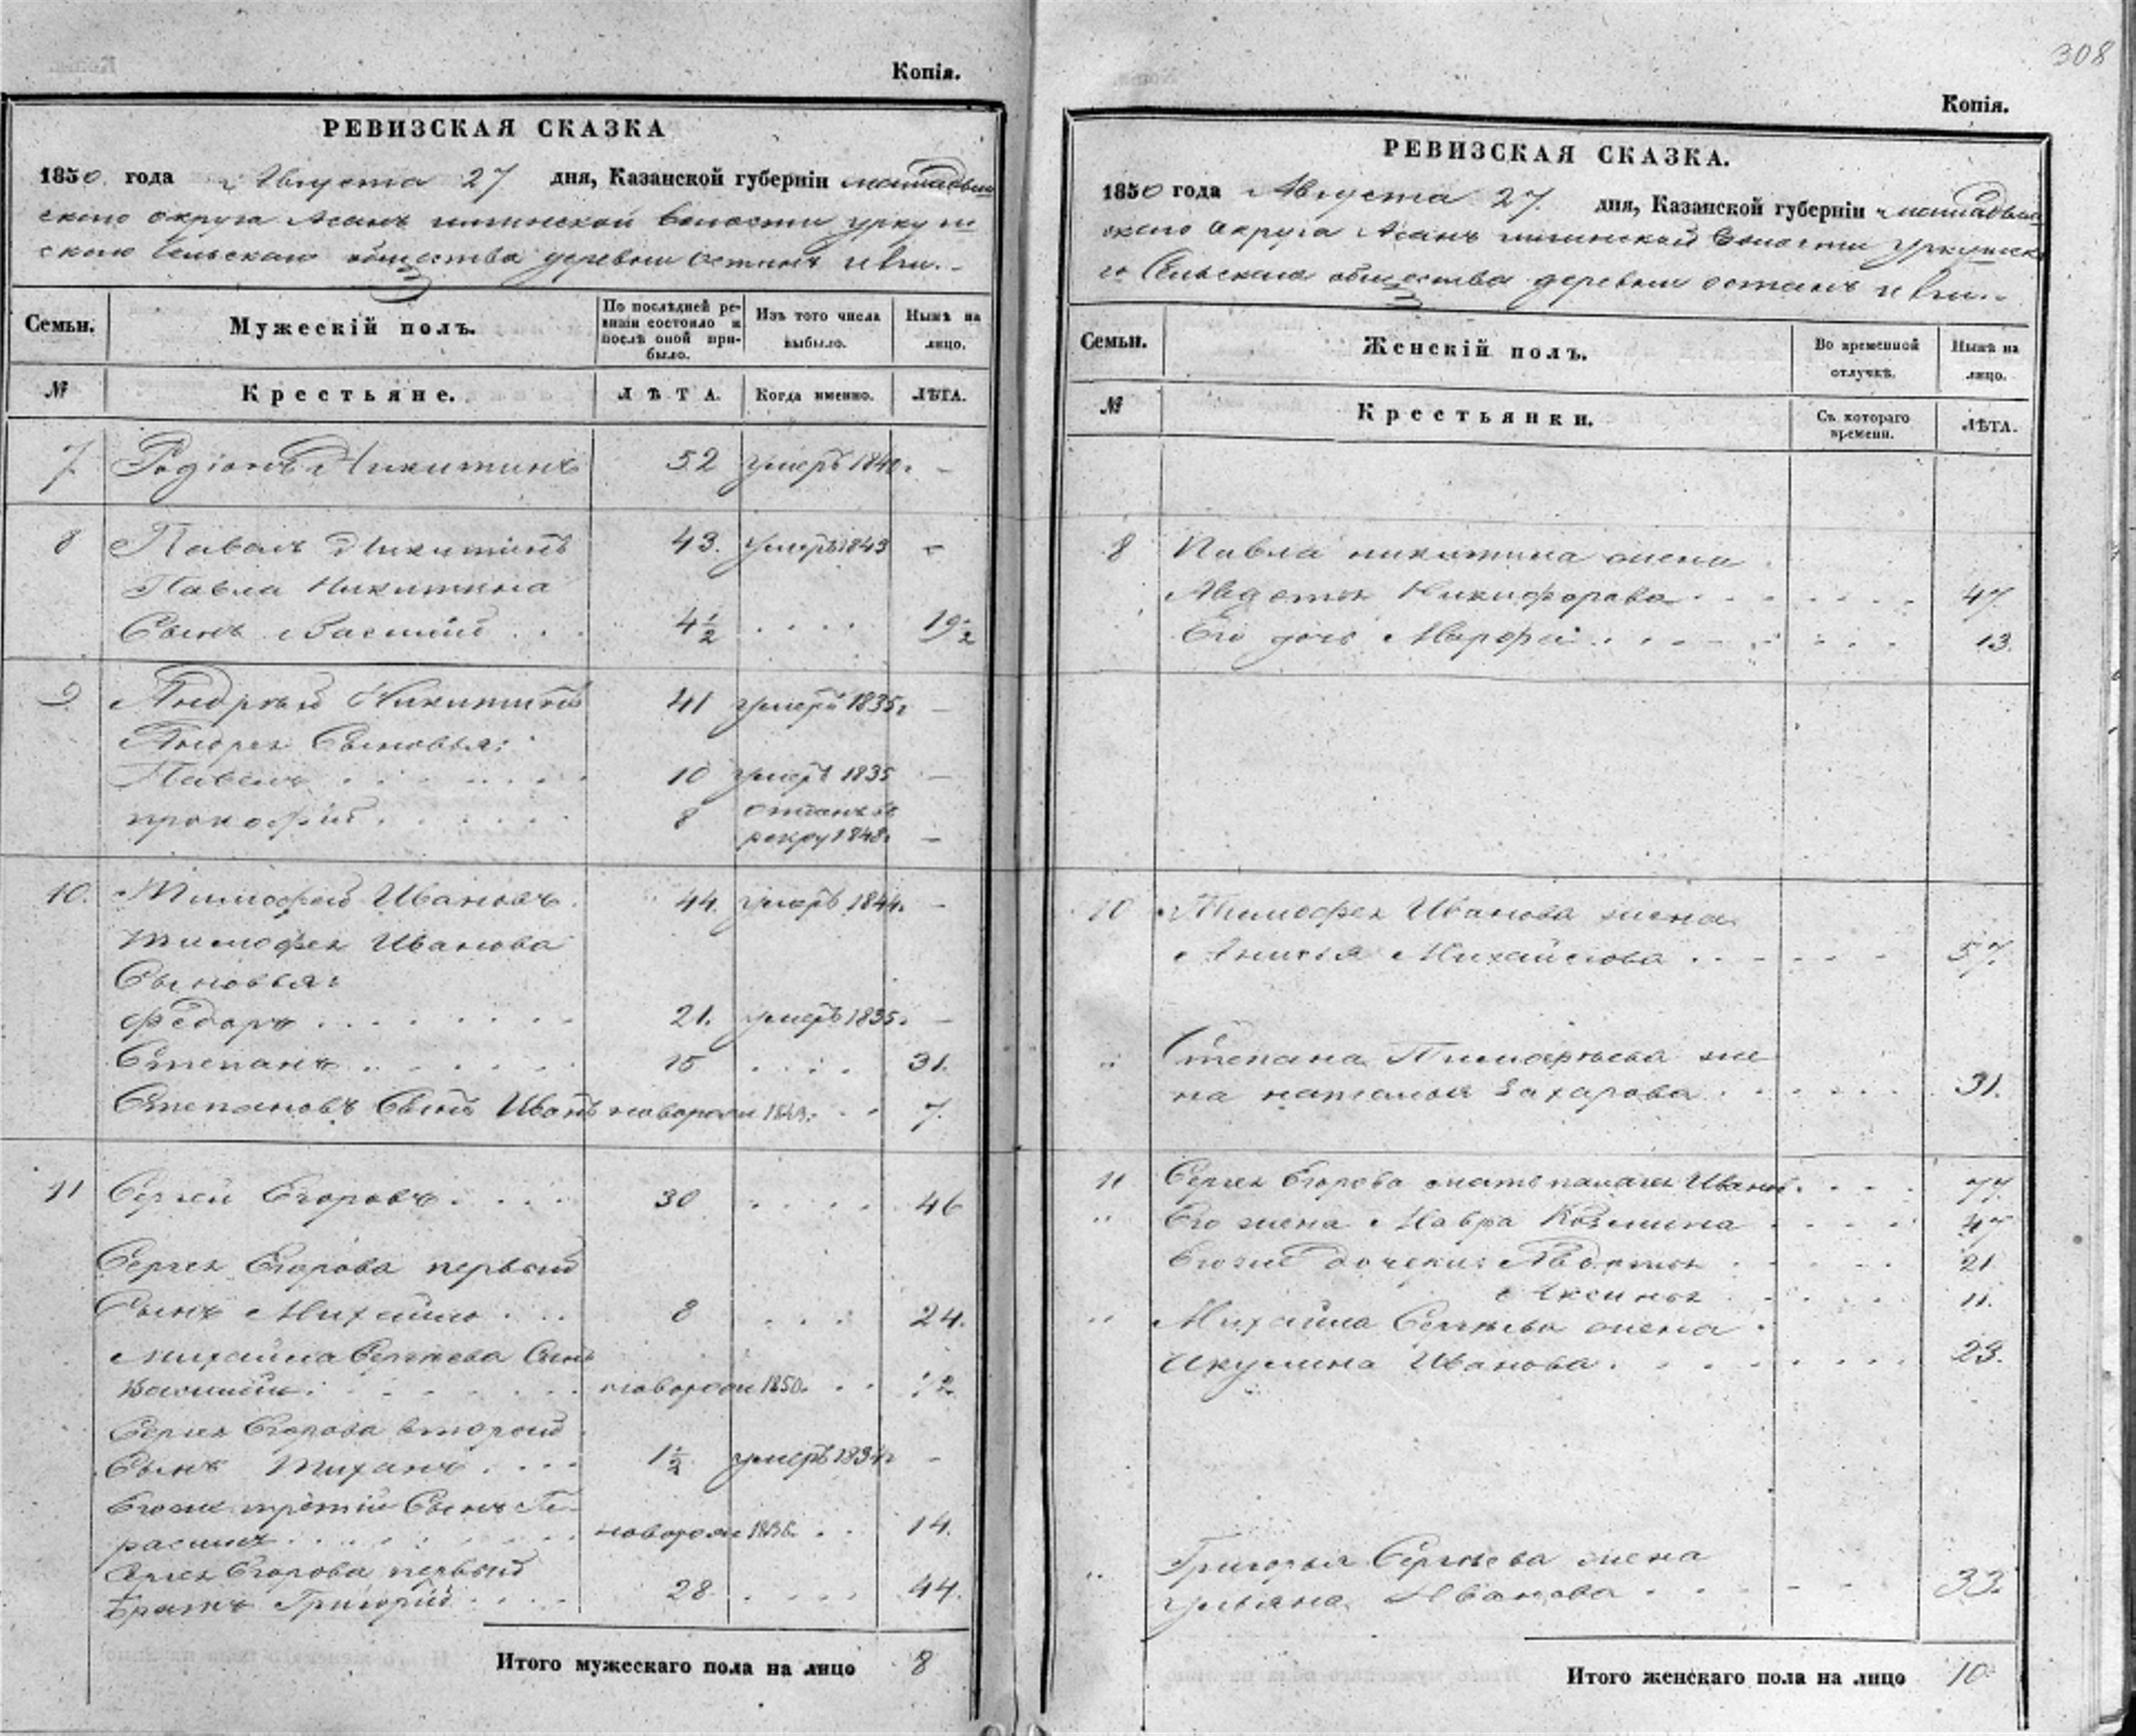 308
Копія.
РЕВИЗСКАЯ СКАЗКА
1850 года Августа 27 дня, Казанской губерніи
скаго округа волости
скаго Сельскаго общества деревни
Семьи.
Мужескій полъ.
По послѣдней ре-
визіи состояло и
послѣ оной при-
было.
Изъ того числа
выбыло.
Нынѣ на
лицо.
№
Крестьяне.
ЛѢТА.
Когда именно.
ЛѢТА.
7 Родіонъ Никитинъ 52 умеръ 1840. -
8 Павелъ Никитинъ 43. умеръ 1843 -
Павла Никитина
Сынъ Василий . . . 4½ . . . . 19½
9 Андрей Никитинъ 41 умеръ 1835г -
Андрея Сыновья:
Павелъ . . . . . . 10 умеръ 1835 -
прокофий . . . . . 8 отданъ въ
рекру 1848г -
10. Тимофей Ивановъ. 44. умеръ 1844. -
тимофея Иванова
Сыновья:
Федоръ . . . . . . . 21. умеръ 1835г -
Степанъ . . . . . 15 . . . . 31.
Степановъ Сынъ Иванъ новорожд 1843. . . 7.
11 Сергей Егоровъ . . . . 30 . . . . 46
Сергея Егорова первый
Сынъ Михайло . . . 8 . . . . 24.
Михайла Сергеева Сынъ
новорож 1850. . .
Сергея Егорова второй
Сынъ Тихонъ . . . . 1½ умеръ 1834г -
Егоже третій Сынъ Ге-
расимъ . . . . . новорож 1836. . . 14.
Сергея Егорова первый
братъ Григорий . . . . 28. . . . . 44.
Итого мужескаго пола на лицо 8
Копія.
РЕВИЗСКАЯ СКАЗКА.
1850 года Августа 27. дня, Казанской губерніи
скаго округа волости
го Сельскаго общества деревни
Семьи.
Женскій полъ.
Во временной
отлучкѣ.
Нынѣ на
лицо.
№
Крестьянки.
Съ котораго
времени.
ЛѢТА.
8 Павла никитина жена
Авдотья Никифорова . . . . . 47.
Его дочь Марфа . . . . . 13.
10 Тимофея Иванова жена
Анисья Михайлова . . . . . 57.
" Степана Тимофеева же
на наталья Захарова . . . . . 31.
11 Сергея Егорова мать Иванов. . . . 77.
" Его жена Мавра Козмина . . . . 47
Егоже дочери: Авдотья . . . . 21
Аксинья . . . . 11.
" Михайла Сергеева жена
Акулина Иванова . . . . . 23.
" Григорья Сергеева жена
ульяна Иванова . . . . 33.
Итого женскаго пола на лицо 10.